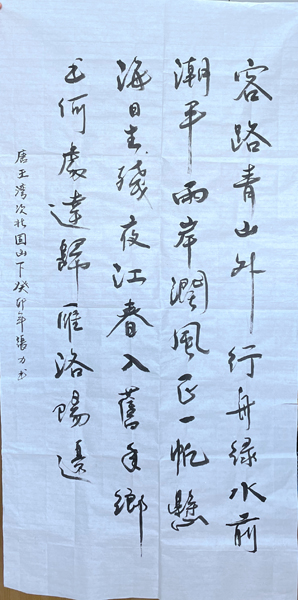 客路青山外行舟绿水前
潮平兩岸濶風正一帆懸
海日生殘夜江春入舊年鄉
书何處達歸雁洛陽邊
唐王湾次北固山下癸卯年張力书